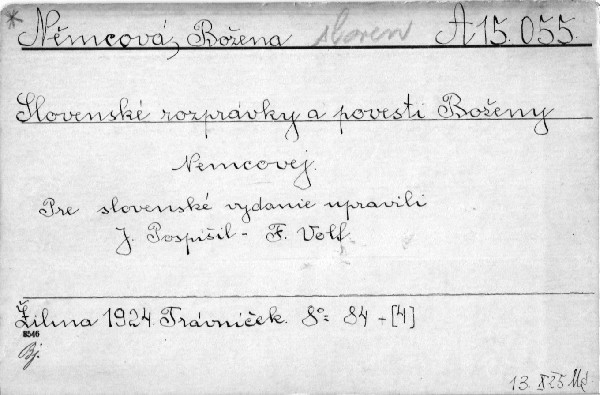 * Němcová, Božena sloven A 15.055.
Slovenské rozprávky a povesti Boženy
Nemcovej.
Pre slovenské vydanie upravili
J. Pospíšil - F. Volf.
Žilina 1924. Trávníček. 8° 84 - [4]
8546
Bj.
13. X 25